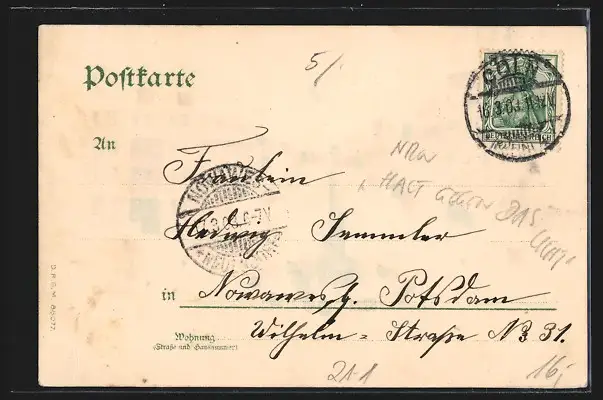 5/.
Postkarte
CÖLN
16.3.0
DEUTSCHES REICH
(RHEIN)
An
NRW
Fräulein
NOWAWES
HALT GEGEN DAS
LICHT
Hedwig Semmler
in Nowawes b/. Potsdam
D.R.G.M. 88077.
Wohnung
(Straße und Hausnummer)
Wilhelm-Straße No 31.
21-1
16,-